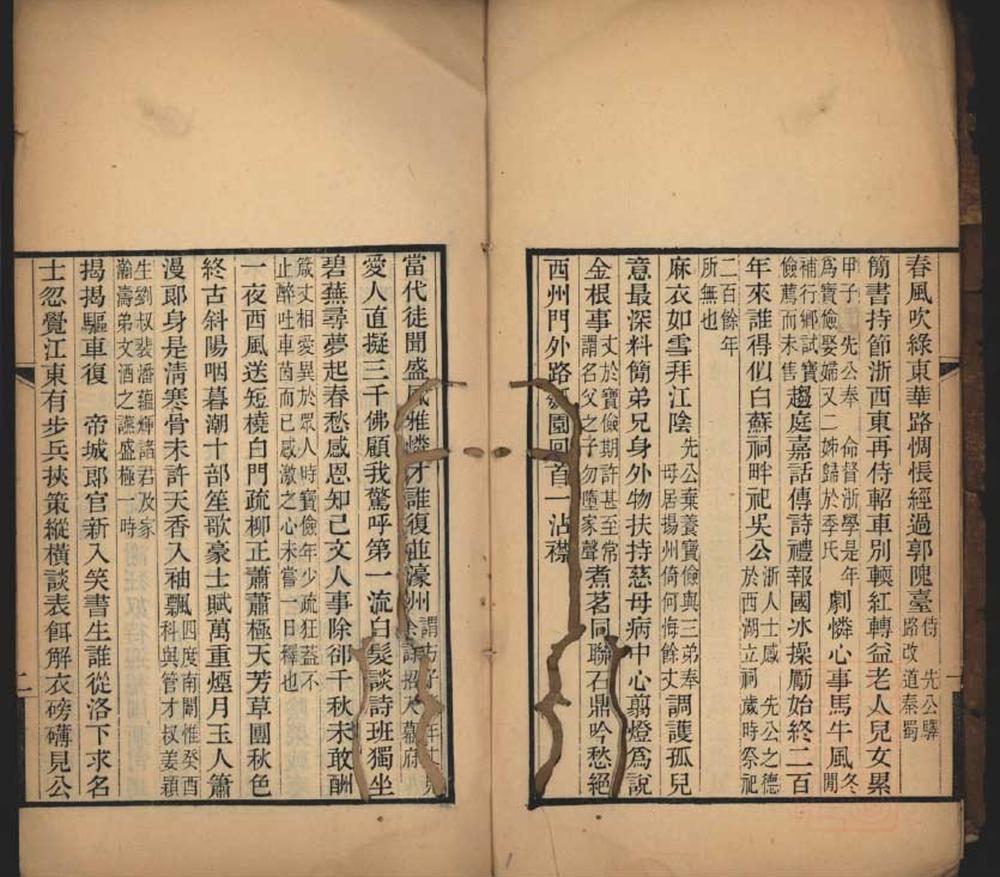 春風吹綠東華路惆悵經過郭隗臺侍 先公驛路改道秦蜀
簡書持節浙西東再侍軺車別轅紅轉益老人兒女累
甲子 先公奉 命督浙學是年冬為寶儉娶婦又二姊歸於季氏 劇憐心事馬牛風閒
補行鄉試寶儉薦而未售趨庭嘉話傳詩禮報國冰操勵始終二百
年來誰得似白蘇祠畔祀吳公浙人士感 先公之德於西湖立祠歲時祭祀
二百餘年所無也
麻衣如雪拜江陰先公棄養寶儉與三弟奉母居揚州倚何悔餘丈調護孤兒
意最深料簡弟兄身外物扶持慈母病中心翦燈為說
金根事丈於寶儉期許甚至常謂名父之子勿墮家聲煮茗同聯石鼎吟愁絕
西州門外路 園回首一沾襟
當代徒聞盛 雅憐才誰復並濠洲謂方子 招入幕府
愛人直擬三千佛顧我驚呼第一流白髮談詩班獨坐
碧蕪尋夢起春愁感恩知己文人事除卻千秋未敢酬
箴丈相愛異於眾人時寶儉年少疏狂蓋不止醉吐車茵而已感激之心未嘗一日釋也
一夜西風送短橈白門疏柳正蕭蕭極天芳草團秋色
終古斜陽咽暮潮十部笙歌豪士賦萬重煙月玉人簫
漫郎身是清寒骨未許天香入袖飄四度南闈惟癸酉科與管才叔姜穎
生劉叔裴潘蘊輝諸君及家瀚濤弟文酒之讌盛極一時
揭揭驅車復 帝城郎官新入笑書生誰從洛下求名
士忽覺江東有步兵挾策縱橫談表餌解衣磅礡見公
一
二